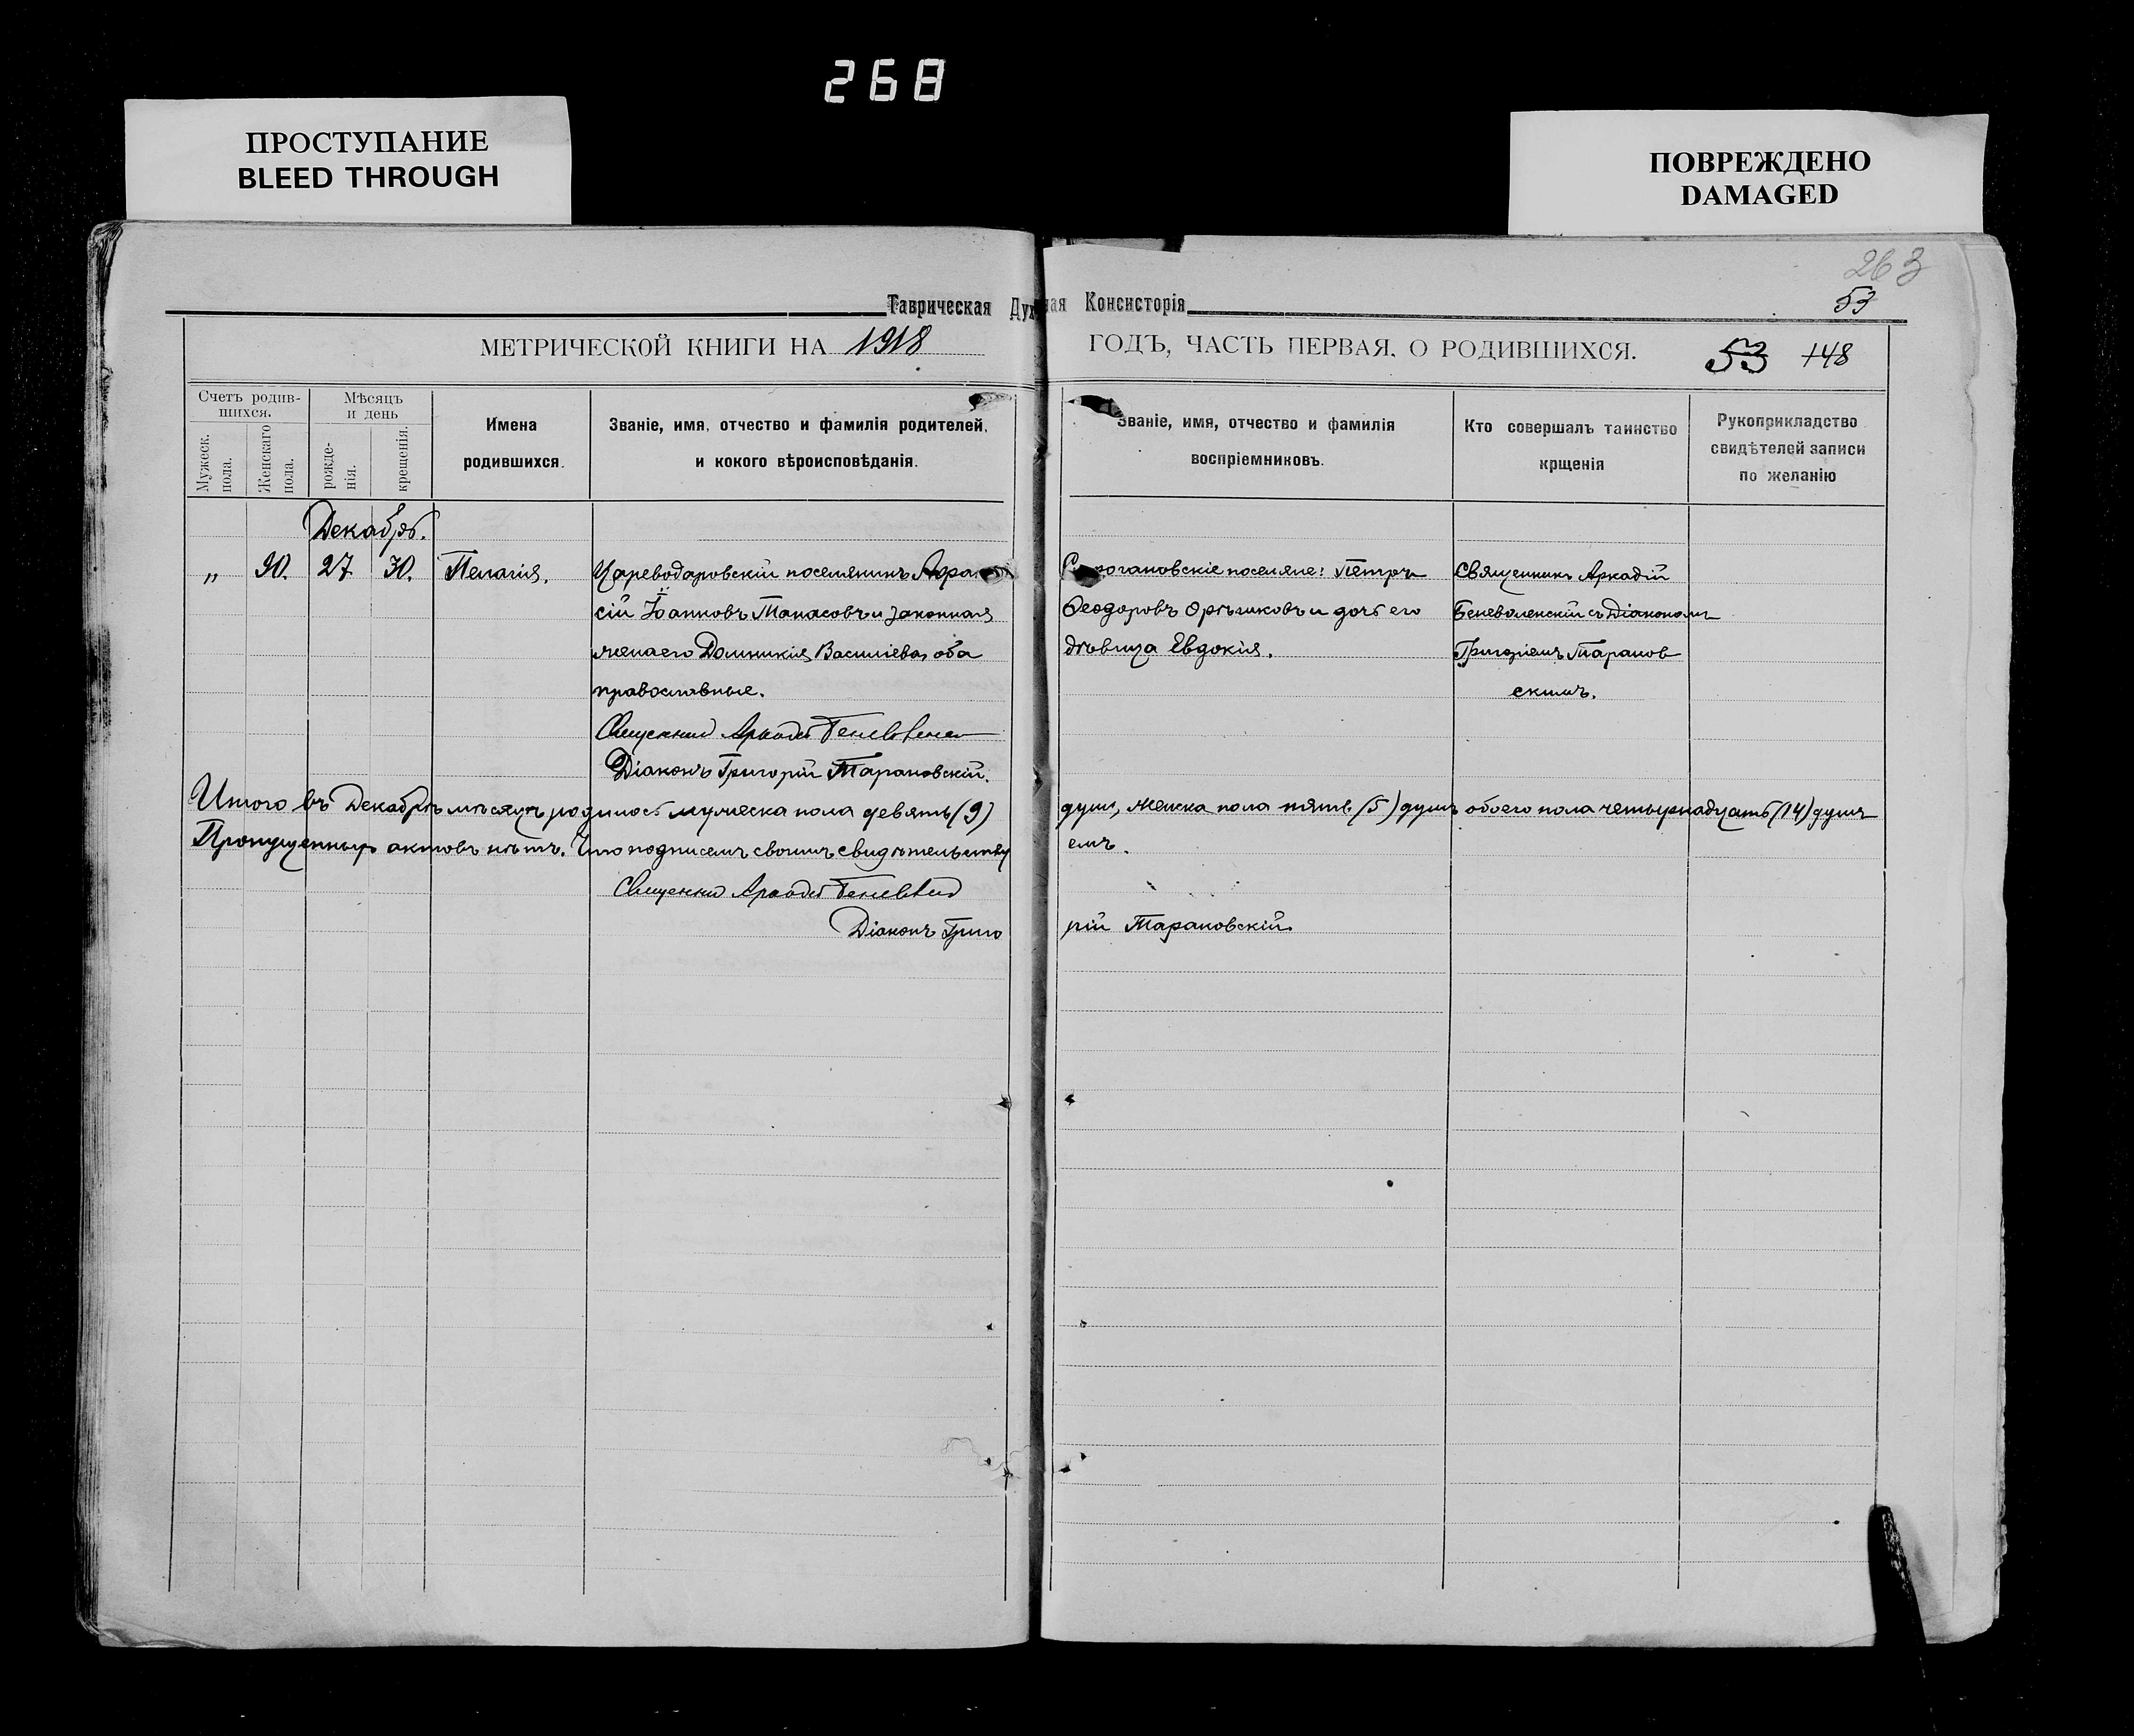 268
ПРОСТУПАНИЕ
BLEED THROUGH
ПОВРЕЖДЕНО
DAMAGED
263
53
Таврическая Дух ная Консисторія
МЕТРИЧЕСКОЙ КНИГИ НА 1918 ГОДЪ, ЧАСТЬ ПЕРВАЯ, О РОДИВШИХСЯ. 53 148
Счетъ родив-
шихся.
Мужеск.
пола.
Женскаго
пола.
Мѣсяцъ
и день
рожде-
нія.
крещенія.
Имена
родившихся.
Званіе, имя, отчество и фамилія родителей,
и кокого вѣроисповѣданія.
Званіе, имя, отчество и фамилія
воспріемниковъ.
Кто совершалъ таинство
крщенія
Рукоприкладство
свидѣтелей записи
по желанію
Декабрь.
„ 90. 27 30. Пелагія.
Цареводаровскій поселянинъ
сій Іоанновъ Танасовъ и законная
жена его Домникія Васильева, оба
православные.
Священникъ Аркадій
Діаконъ Григорій Тарановскій.
поселяне: Петръ
Феодоровъ и дочь его
дѣвица Евдокія.
Священникъ Аркадій
Беневоленскій съ Діакономъ
Григоріемъ Таранов
скимъ.
Итого въ Декабрѣ мѣсяцѣ родилось мужеска пола девять (9) душъ, женска пола пять (5) душъ обоего пола четырнадцать (14) душъ
Пропущенныхъ актовъ нѣтъ. Что подписемъ своимъ свидѣтельству емъ.
Священникъ Аркадій
Діаконъ Григо рій Тарановскій.